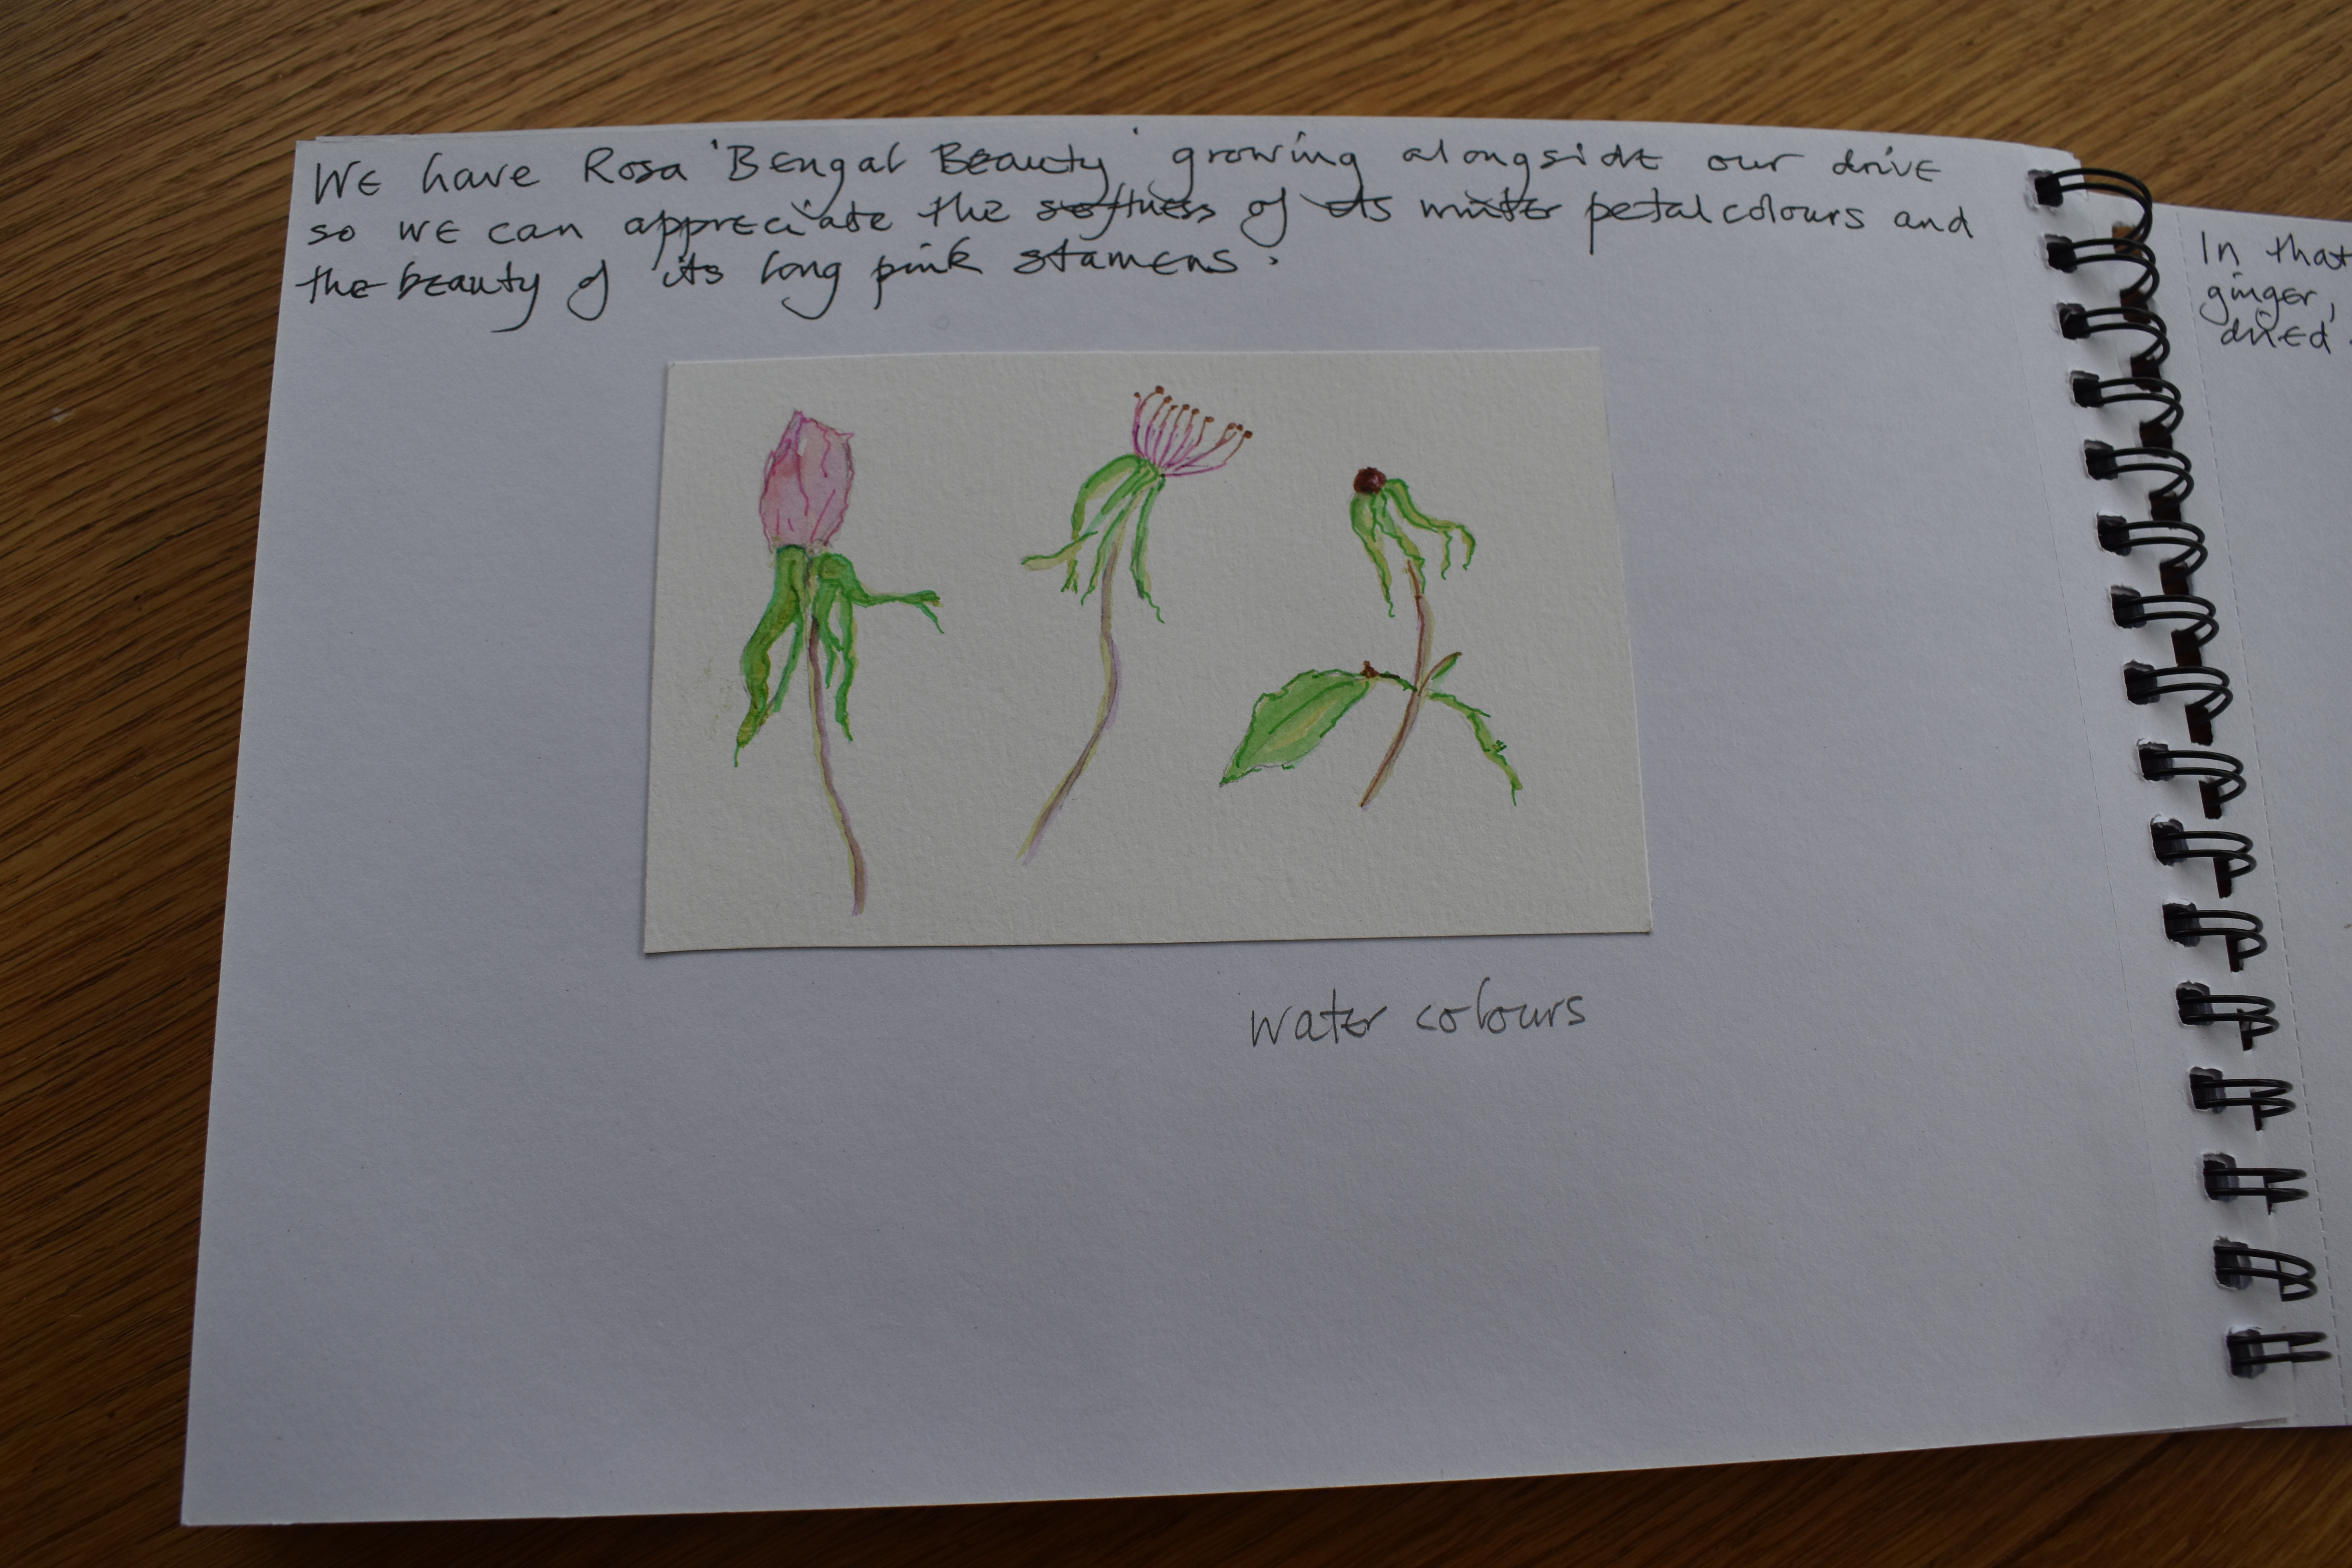 We have Rosa 'Bengal Beauty' growing alongside our drive
so we can appreciate the softness of its winter petal colours and
the beauty of its long pink stamens.
water colours
In that
ginger,
dried